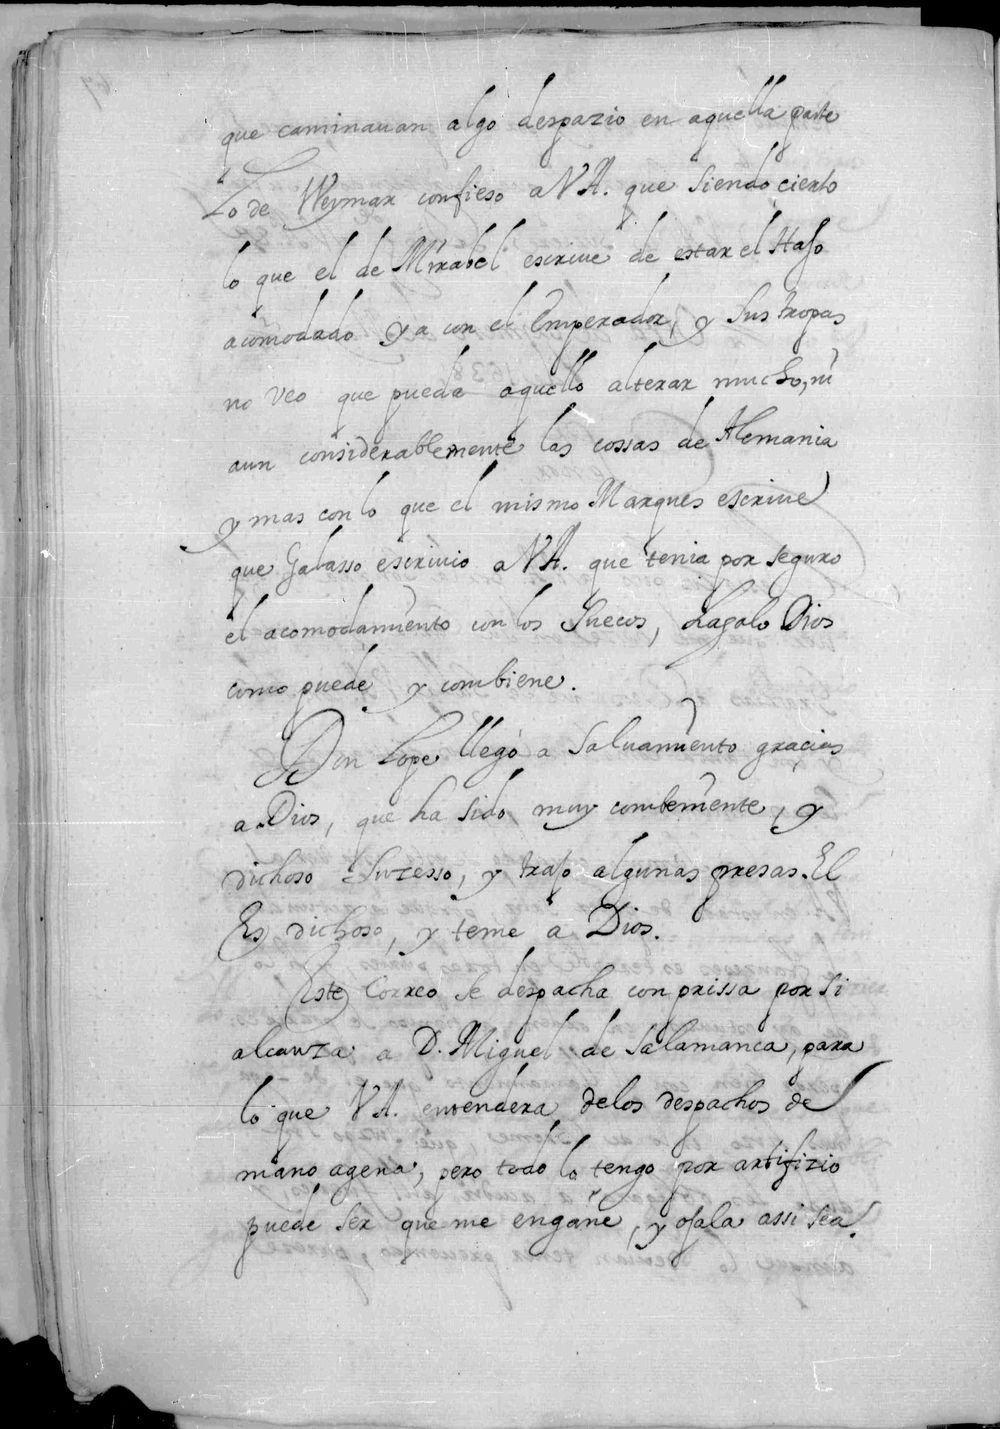 que caminauan algo despazio en aquella parte
Lo de Weymar confieso a V A. que siendo cierto
lo que el de Mirabel escriue de estar el Haso
acomodado ya con el Emperador, y sus tropas
no veo que pueda aquello alterar mucho, ni
aun considerablemente las cossas de Alemania
y mas con lo que el mismo Marques escriue
que Galasso escriuio a V A. que tenia por seguro
el acomodamiento con los Suecos, hagalo Dios
como puede y combiene.
Don Lope llegó a saluamento gracias
a Dios, que ha sido muy combeniente, y
dichoso suzesso, y trajo algunas presas. El
Es dichoso, y teme a Dios.
Este Correo se despacha con prissa por si
alcanza a D. Miguel de Salamanca, para
lo que V A. entendera de los despachos de
mano agena, pero todo lo tengo por artifizio
puede ser que me engañe, y ojala assi sea.